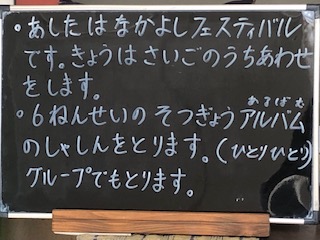 ・あしたはなかよしフェスティバル
です。きょうはさいごのうちあわせ
をします。
・6ねんせいのそつぎょうアルバム
あるばむ
のしゃしんをとります。(ひとりひとり)
グループでもとります。